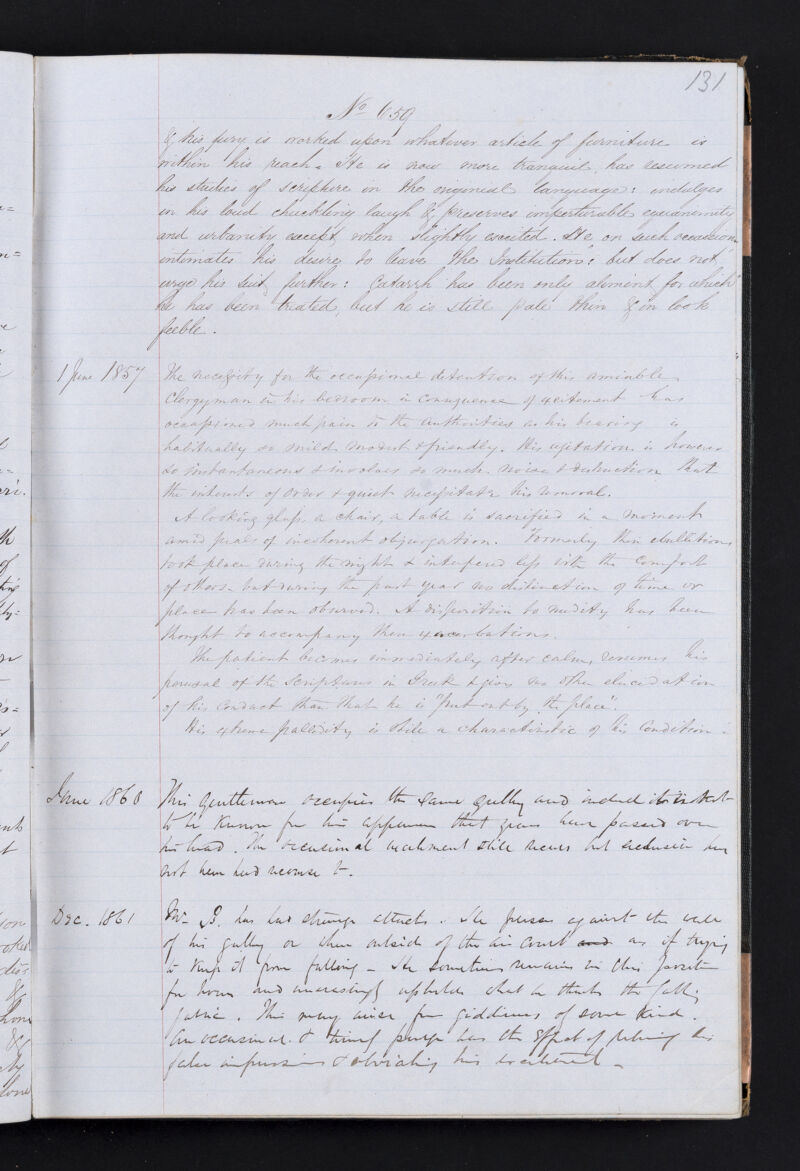 131
No 659
& his fury is worked upon whatever article of furniture is
within his reach. He is now more tranquil, has resumed
his studies of scripture in the original language: indulges
in his loud chuckling laugh & preserves imperturbable equanimity
and urbanity except when slightly excited. He on such occasions
intimates his desire to leave the Institution: but does not
urge his suit further: Catarrh has been only ailment for which
he has been treated, but he is still pale thin & in look
feeble.
1 June 1857 The necessity for the occasional detention of this amiable
Clergyman in his bedroom in consequence of excitement has
occasioned much pain to the authorities as his bearing is
habitually so mild modest & friendly. His agitation is however
so instantaneous & involves so much noise & destruction that
the interests of order & quiet necessitate his removal.
A looking glass, a chair, a table is sacrificed in a moment
amid peals of incoherent objurgation. Formerly these ebullitions
took place during the night & interfered less with the comfort
of others but during the past year no distinction of time or
place has been observed. A disposition to nudity has been
thought to accompany these exacerbations.
The patient becomes immediately after calm, resumes his
perusal of the Scriptures in Greek & gives no other elucidation
of his conduct than that he is "put out by the place".
His extreme pallidity is still a characteristic of his condition.
June 1860 This gentleman occupies the same gallery and indeed it is not
to be known from his appearance that years have passed over
his head. The occasional excitement still recurs but seclusion has
not been had recourse to.
Dec. 1861 Mr B. has had strange attacks. He presses against the wall
of his gallery or when outside of the air court as if trying
to keep it from falling - He sometimes remains in this position
for hours and unceasingly upholds what he thinks the falling
fabric. This may arise from giddiness of some kind.
An occasional & timely purge has the effect of relieving his
false impressions & obviating his excitement.